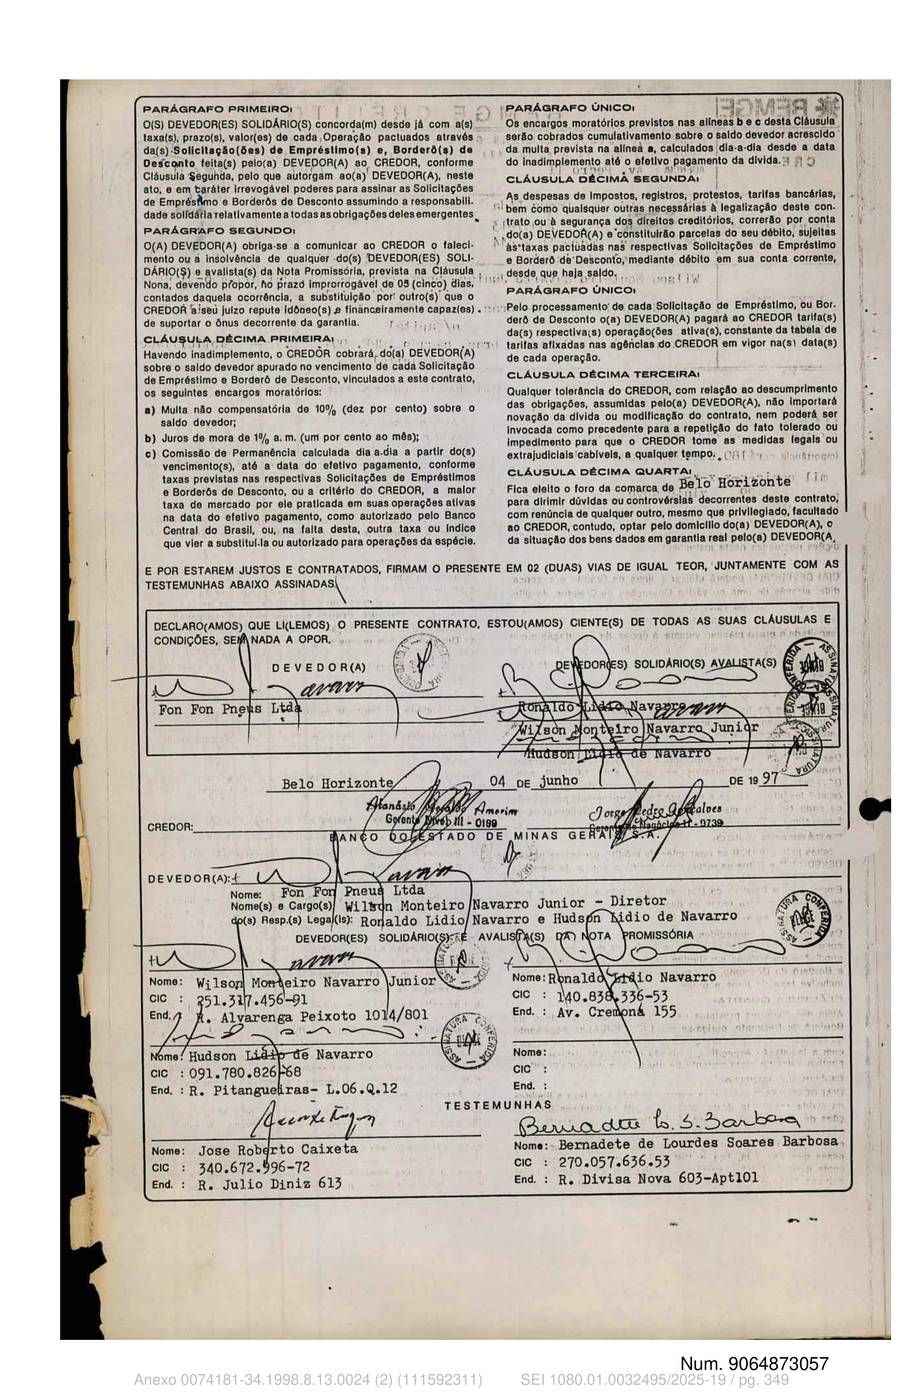 PARÁGRAFO PRIMEIRO:
O(S) DEVEDOR(ES) SOLIDÁRIO(S) concorda(m) desde já com a(s)
taxa(s), prazo(s), valor(es) de cada Operação pactuados através
da(s) Solicitação(ões) de Empréstimo(s) e, Borderô(s) de
Desconto feita(s) pelo(a) DEVEDOR(A) ao CREDOR, conforme
Cláusula Segunda, pelo que autorgam ao(a) DEVEDOR(A), neste
ato, e em caráter irrevogável poderes para assinar as Solicitações
de Empréstimo e Borderôs de Desconto assumindo a responsabili-
dade solidária relativamente a todas as obrigações deles emergentes
PARÁGRAFO SEGUNDO:
O(A) DEVEDOR(A) obriga-se a comunicar ao CREDOR o faleci-
mento ou a insolvência de qualquer do(s) DEVEDOR(ES) SOLI-
DÁRIO(S) e avalista(s) da Nota Promissória, prevista na Cláusula
Nona, devendo propor, no prazo improrrogável de 05 (cinco) dias,
contados daquela ocorrência, a substituição por outro(s) que o
CREDOR a seu juizo repute idôneo(s) e financeiramente capaz(es)
de suportar o ônus decorrente da garantia.
CLÁUSULA DÉCIMA PRIMEIRA:
Havendo inadimplemento, o CREDOR cobrará do(a) DEVEDOR(A)
sobre o saldo devedor apurado no vencimento de cada Solicitação
de Empréstimo e Borderô de Desconto, vinculados a este contrato,
os seguintes encargos moratórios:
a) Multa não compensatória de 10% (dez por cento) sobre o
saldo devedor;
b) Juros de mora de 1% a. m. (um por cento ao mês);
c) Comissão de Permanência calculada dia a.dia a partir do(s)
vencimento(s), até a data do efetivo pagamento, conforme
taxas previstas nas respectivas Solicitações de Empréstimos
e Borderôs de Desconto, ou a critério do CREDOR, a maior
taxa de mercado por ele praticada em suas operações ativas
na data do efetivo pagamento, como autorizado pelo Banco
Central do Brasil, ou, na falta desta, outra taxa ou índice
que vier a substituí.la ou autorizado para operações da espécie.
PARÁGRAFO ÚNICO:
Os encargos moratórios previstos nas alíneas b e c desta Cláusula
serão cobrados cumulativamente sobre o saldo devedor acrescido
da multa prevista na alínea a, calculados dia-a-dia desde a data
do inadimplemento até o efetivo pagamento da dívida.
CLÁUSULA DÉCIMA SEGUNDA:
As despesas de impostos, registros, protestos, tarifas bancárias,
bem como quaisquer outras necessárias à legalização deste con-
trato ou à segurança dos direitos creditórios, correrão por conta
do(a) DEVEDOR(A) e constituirão parcelas do seu débito, sujeitas
às taxas pactuadas nas respectivas Solicitações de Empréstimo
e Borderô de Desconto, mediante débito em sua conta corrente,
desde que haja saldo.
PARÁGRAFO ÚNICO:
Pelo processamento de cada Solicitação de Empréstimo, ou Bor-
derô de Desconto o(a) DEVEDOR(A) pagará ao CREDOR tarifa(s)
da(s) respectiva(s) operação(ões ativa(s), constante da tabela de
tarifas afixadas nas agências do CREDOR em vigor na(s) data(s)
de cada operação.
CLÁUSULA DÉCIMA TERCEIRA:
Qualquer tolerância do CREDOR, com relação ao descumprimento
das obrigações, assumidas pelo(a) DEVEDOR(A), não importará
novação da dívida ou modificação do contrato, nem poderá ser
invocada como precedente para a repetição do fato tolerado ou
impedimento para que o CREDOR tome as medidas legais ou
extrajudiciais cabíveis, a qualquer tempo.
CLÁUSULA DÉCIMA QUARTA:
Fica eleito o foro da comarca de Belo Horizonte
para dirimir dúvidas ou controvérsias decorrentes deste contrato,
com renúncia de qualquer outro, mesmo que privilegiado, facultado
ao CREDOR, contudo, optar pelo domicílio do(a) DEVEDOR(A), o
da situação dos bens dados em garantia real pelo(a) DEVEDOR(A,
E POR ESTAREM JUSTOS E CONTRATADOS, FIRMAM O PRESENTE EM 02 (DUAS) VIAS DE IGUAL TEOR, JUNTAMENTE COM AS
TESTEMUNHAS ABAIXO ASSINADAS
DECLARO(AMOS) QUE LI(LEMOS) O PRESENTE CONTRATO, ESTOU(AMOS) CIENTE(S) DE TODAS AS SUAS CLÁUSULAS E
CONDIÇÕES, SEM NADA A OPOR.
DEVEDOR(A)
DEVEDOR(ES) SOLIDÁRIO(S) AVALISTA(S)
Fon Fon Pneus Ltda
Ronaldo Lidio Navarro
Wilson Monteiro Navarro Junior
Hudson Lidio de Navarro
ASSINATURA CONFERIDA
BEMGE
Belo Horizonte 04 DE junho DE 19 97
Atanásio Geraldo Amorim
Gerente Nível III - 0199
Jorge Pedro Gonçalves
Gerente de Negócios II - 9739
CREDOR:
BANCO DO ESTADO DE MINAS GERAIS S.A.
DEVEDOR(A):
Nome: Fon Fon Pneus Ltda
Nome(s) e Cargo(s) Wilson Monteiro Navarro Junior - Diretor
do(s) Resp.(s) Legal(is): Ronaldo Lidio Navarro e Hudson Lidio de Navarro
ASSINATURA CONFERIDA
DEVEDOR(ES) SOLIDÁRIO(S) E AVALISTA(S) DA NOTA PROMISSÓRIA
Nome: Wilson Monteiro Navarro Junior
CIC : 251.317.456-91
End. : R. Alvarenga Peixoto 1014/801
Nome: Ronaldo Lidio Navarro
CIC : 140.838.336-53
End. : Av. Cremona 155
ASSINATURA CONFERIDA
BEMGE
Nome: Hudson Lidio de Navarro
CIC : 091.780.826-68
End. : R. Pitangueiras- L.06.Q.12
Nome:
CIC :
End. :
TESTEMUNHAS
Bernadete L. S. Barbosa
Nome: Jose Roberto Caixeta
CIC : 340.672.996-72
End. : R. Julio Diniz 613
Nome: Bernadete de Lourdes Soares Barbosa
CIC : 270.057.636.53
End. : R. Divisa Nova 603-Apt101
Num. 9064873057
Anexo 0074181-34.1998.8.13.0024 (2) (111592311) SEI 1080.01.0032495/2025-19 / pg. 349